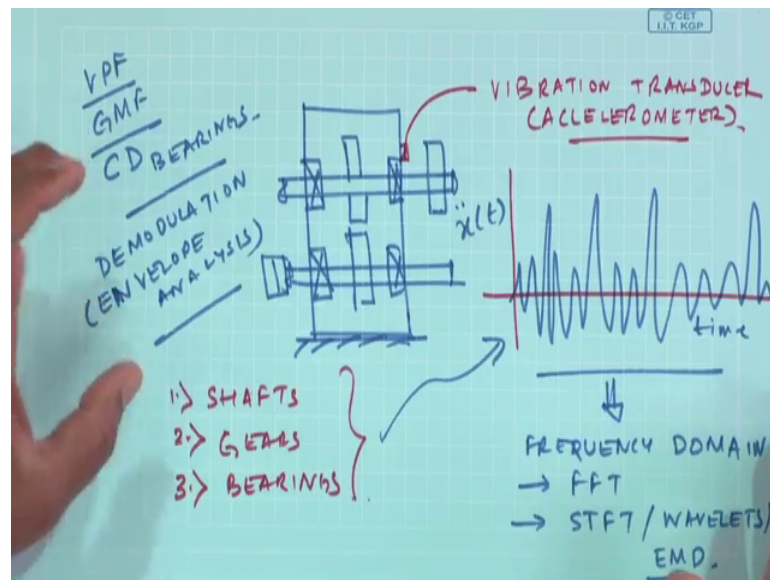 © CET
I.I.T. KGP
VPF
GMF
CD BEARINGS.
DEMODULATION
(ENVELOPE
ANALYSIS)
VIBRATION TRANSDUCER
(ACCLELEROMETER).
ẍ(t)
time
1.) SHAFTS
2.) GEARS
3.) BEARINGS
FREQUENCY DOMAIN
→ FFT
→ STFT / WAVELETS/
EMD.